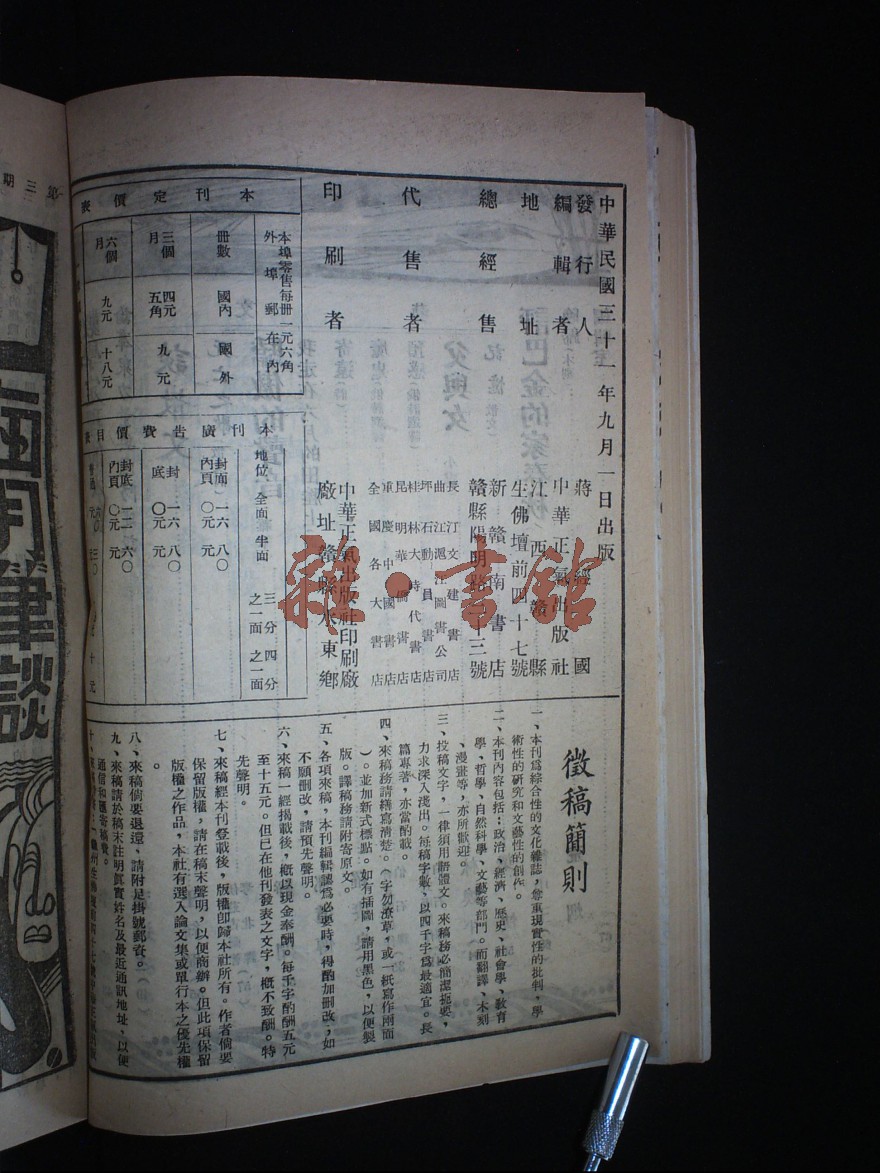 中華民國三十一年九月一日出版
發行人 蔣經國
編輯者 中華正氣出版社
地址 江西贛縣
生佛壇前四十七號
總經售 新贛南書店
贛縣陽明路十三號
代售者 長汀文建書店
曲江滬江圖書公司
坪石動員書店
桂林大時代書店
昆明華僑書店
重慶中國書店
全國各大書店
印刷者 中華正氣出版社印刷廠
廠址贛縣水東鄉
本刊定價表
本埠零售每冊一元六角
外埠郵在內
冊數 國內 國外
三個月 四元五角 九元
六個月 九元 十八元
本刊廣告費價目表
地位 全面 半面 三分之一面 四分之一面
封面內頁 一六〇元 八〇元
封底 一六〇元 八〇元
封底內頁 一二〇元 六〇元
徵稿簡則
一、本刊爲綜合性的文化雜誌，尊重現實性的批判，學
術性的研究和文藝性的創作。
二、本刊內容包括：政治、經濟、歷史、社會學、教育
學、哲學、自然科學、文藝等部門。而翻譯、木刻
、漫畫等，亦所歡迎。
三、投稿文字，一律須用語體文。來稿務必簡潔扼要，
力求深入淺出。每稿字數，以四千字爲最適宜。長
篇專著，亦當酌載。
四、來稿務請繕寫清楚。（字勿潦草，或一紙寫作兩面
）。並加新式標點。如有插圖，請用黑色，以便製
版。譯稿務請附寄原文。
五、各項來稿，本刊編輯認爲必要時，得酌加刪改，如
不願刪改，請預先聲明。
六、來稿一經揭載後，概以現金奉酬。每千字酌酬五元
至十五元。但已在他刊發表之文字，概不致酬。特
先聲明。
七、來稿經本刊登載後，版權卽歸本社所有。作者倘要
保留版權，請在稿末聲明，以便商辦。但此項保留
版權之作品，本社有選入論文集或單行本之優先權
八、來稿倘要退還，請附足掛號郵資。
九、來稿請於稿末註明眞實姓名及最近通訊地址，以便
通信和匯寄稿費。
第三期
筆談
雜·書館